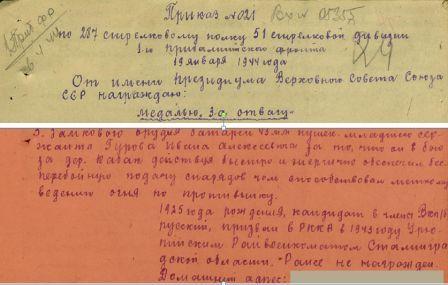 Приказ №021 Вх№ 05357
по 287 стрелковому полку 51 стрелковой дивизии
1-го Прибалтийского фронта
19 января 1944 года
От имени Президиума Верховного Совета Союза
ССР награждаю:
медалью „За отвагу“
5. Замкового орудия батареи 45 мм пушек младшего сер-
жанта Гурова Ивана Алексеевича за то, что он в бою
за дер. действуя быстро и энергично обеспечил бес-
перебойную подачу снарядов чем способствовал меткому
ведению огня по противнику.
1925 года рождения, кандидат в члены ВКП/б
русский, призван в РККА в 1943 году Урю-
пинским Райвоенкоматом Сталингра-
дской области. Ранее не награжден.
Домашний адрес: